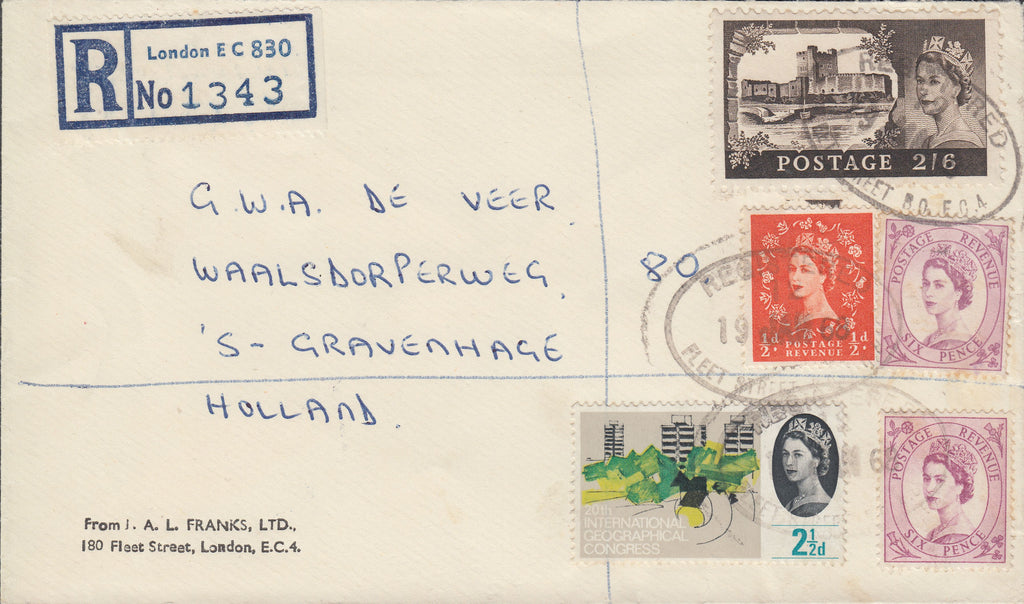 R
London E C 830
No 1343
POSTAGE 2/6
G.W.A. DE VEER
WAALSDORPERWEG, 80
'S-GRAVENHAGE
HOLLAND.
½d ½d
POSTAGE
REVENUE
POSTAGE REVENUE
SIX PENCE
FLEET STREET
20th
INTERNATIONAL
GEOGRAPHICAL
CONGRESS
2½d
POSTAGE REVENUE
SIX PENCE
From J. A. L. FRANKS, LTD.,
180 Fleet Street, London, E.C.4.